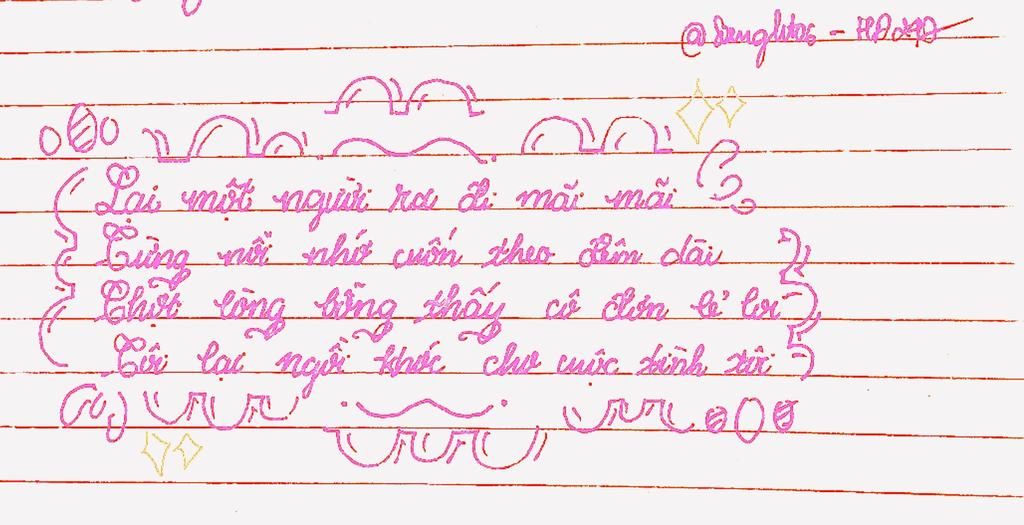 Lại một người ra đi mãi mãi
Cùng nỗi nhớ cuốn theo đêm dài
Chợt lòng bỗng thấy cô đơn lẻ loi
Tôi lại ngồi khóc cho cuộc tình tôi